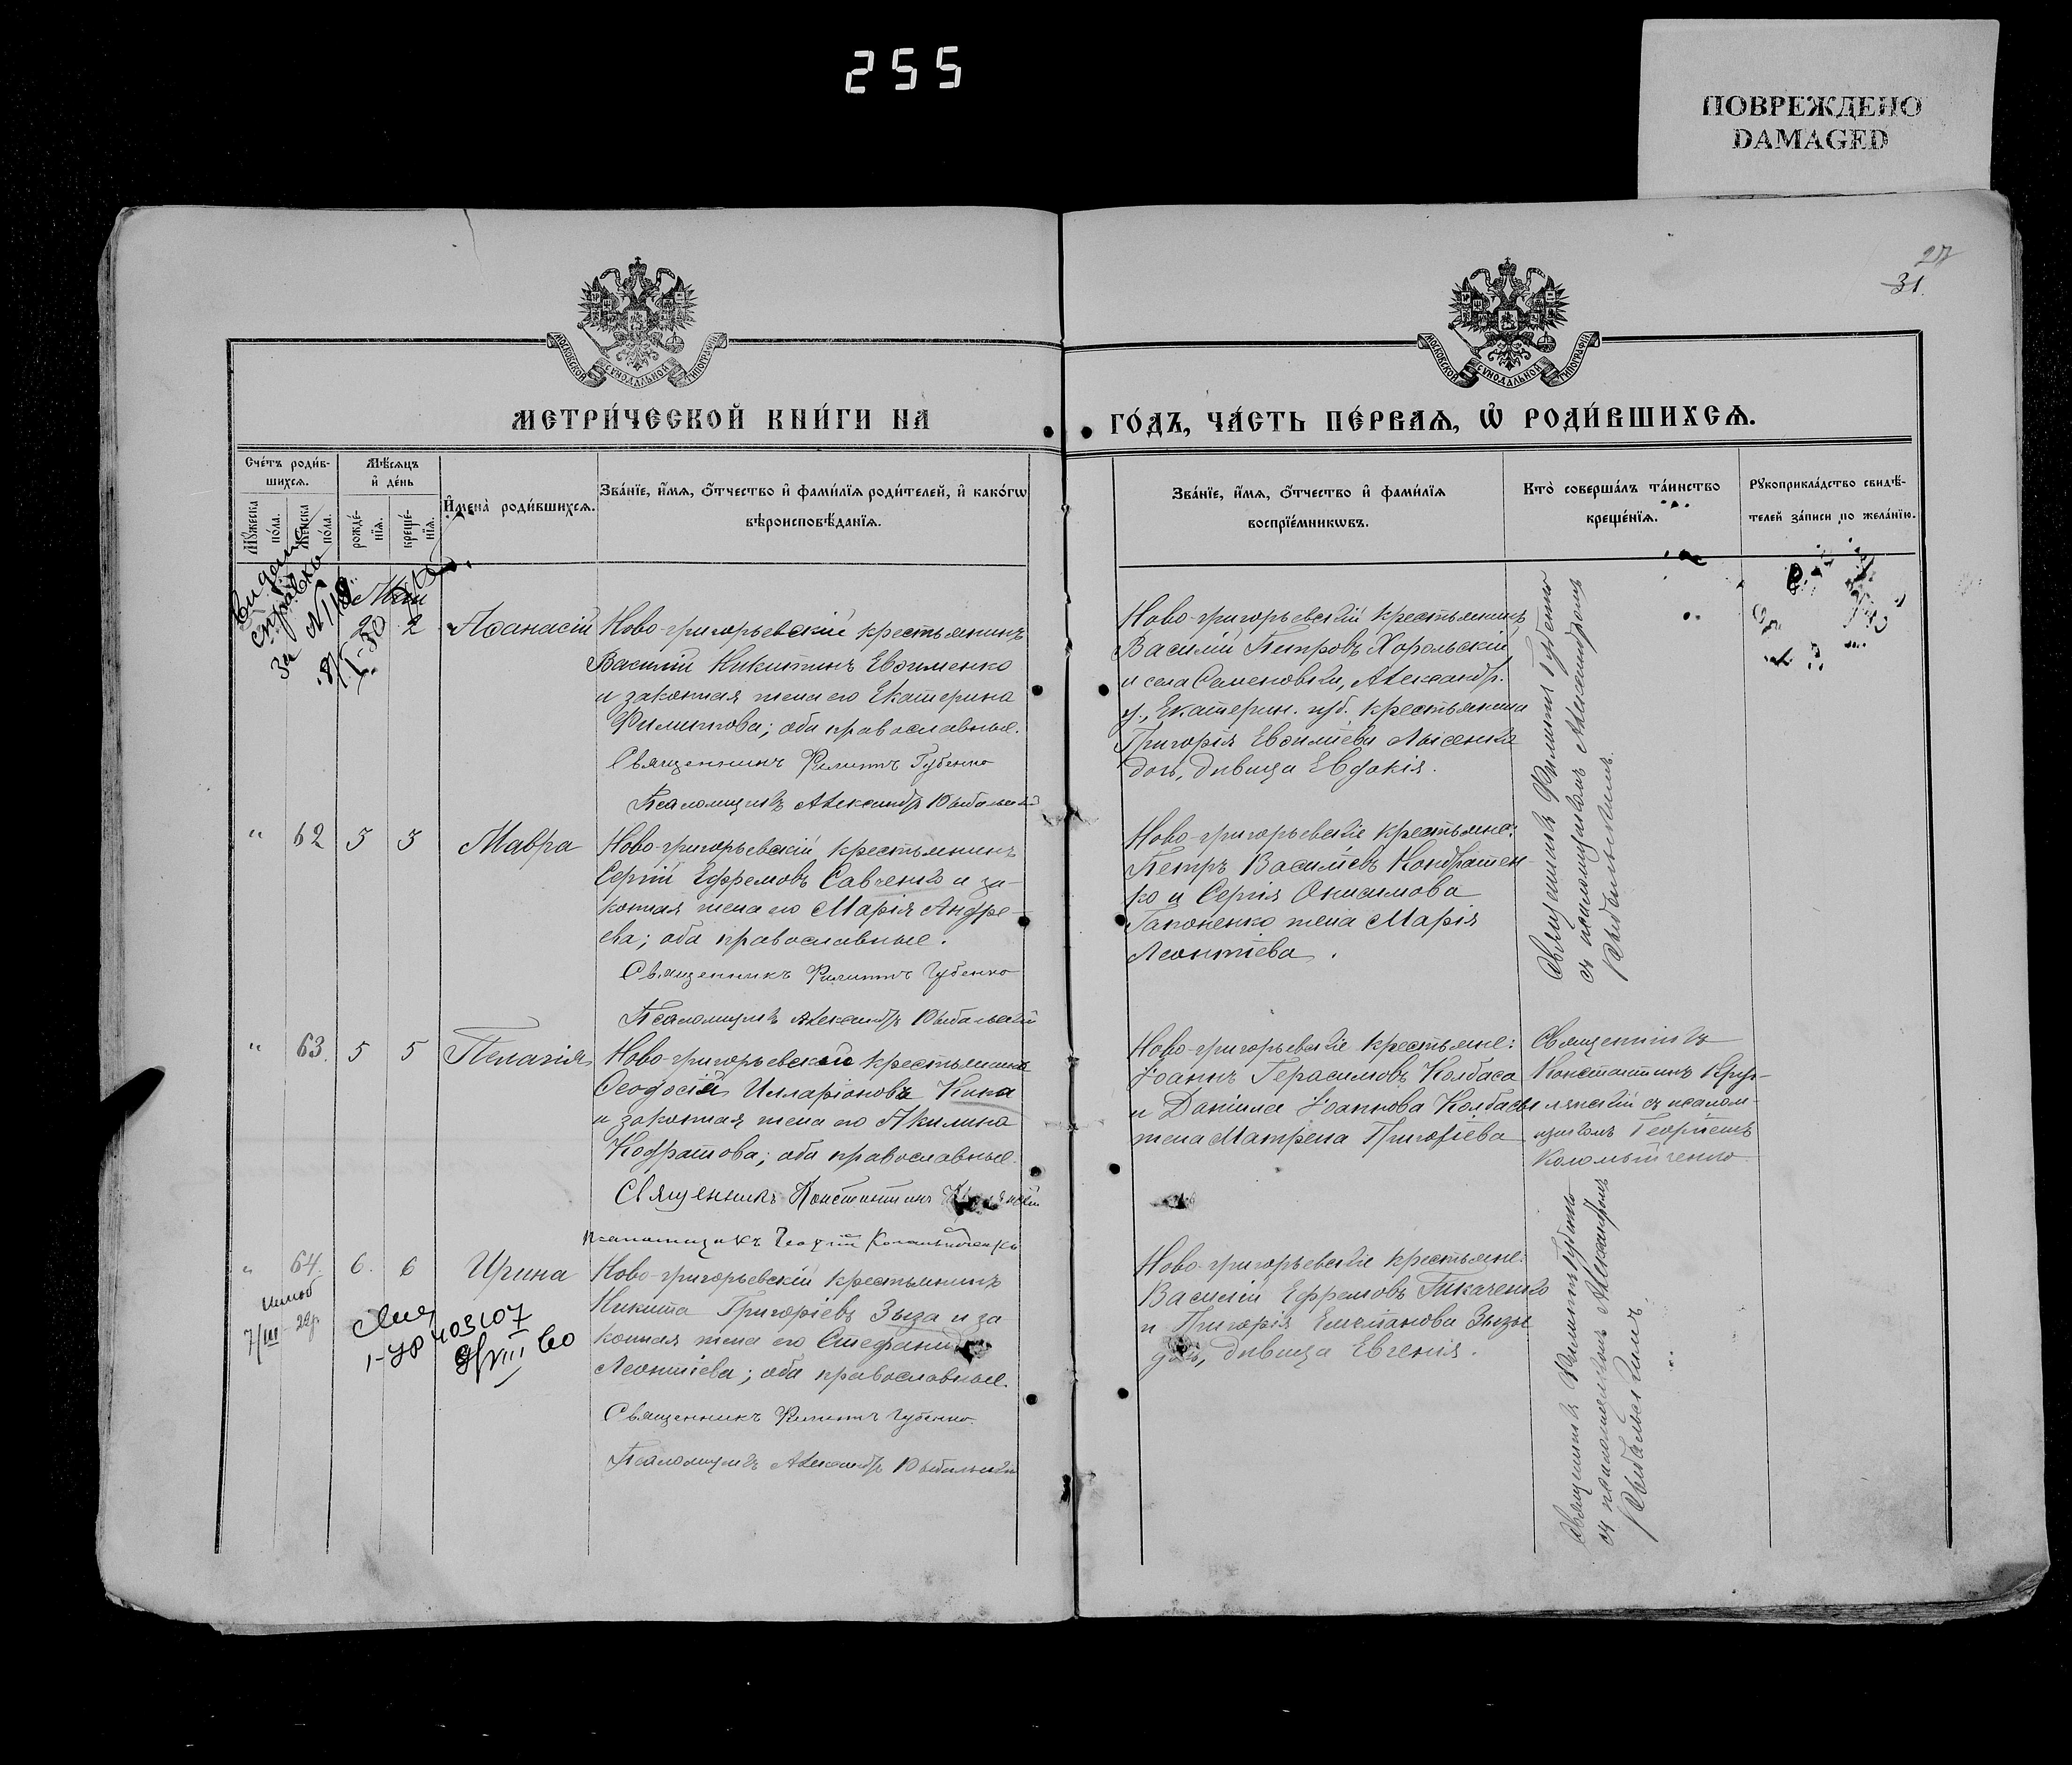 255
ПОВРЕЖДЕНО
DAMAGED
27
31.
МОСКОВСКОЙ СѴНОДАЛЬНОЙ ТИПОГРАФІИ
МОСКОВСКОЙ СѴНОДАЛЬНОЙ ТИПОГРАФІИ
МЕТРИ́ЧЕСКОЙ КНИ́ГИ НА
ГО́ДЪ, ЧА́СТЬ ПЕ́РВАѦ, Ѡ҆ РОДИ́ВШИХСѦ.
Сче́тъ роди́в-
шихсѧ.
Мꙋ́жеска
по́ла.
Же́нска
по́ла.
Мѣ́сѧцъ
и҆ де́нь
рожде́-
нїѧ.
креще́-
нїѧ.
И҆мена̀ роди́вшихсѧ.
Зва́нїе, и҆́мѧ, ѻ҆́тчество и҆ фами́лїѧ роди́телей, и҆ како́гѡ
вѣроисповѣ́данїѧ.
Зва́нїе, и҆́мѧ, ѻ҆́тчество и҆ фами́лїѧ
воспрїе́мникѡвъ.
Кто̀ соверша́лъ та́инство
креще́нїѧ.
Рꙋкоприкла́дство свидѣ́-
телей за́писи по жела́нїю.
справка
за №
Май
2
Аѳанасій
Ново-григорьевскій крестьянинъ
Василій Никитинъ Евѳименко
и законная жена его Екатерина
Филиппова; оба православные.
Священникъ Филиппъ Губенко
Псаломщикъ Александръ Рыбальскій
Ново-григорьевскій крестьянинъ
Василій Петровъ Хорольскій
и села Семеновки, Александр.
у., Екатерин. губ. крестьянина
Григорія Евѳиміева Лысенка
дочь, дѣвица Евдокія.
Священникъ Филиппъ Губенко
съ псаломщикомъ Александромъ
Рыбальскимъ.
" 62 5 5 Мавра
Ново-григорьевскій крестьянинъ
Сергій Ефремовъ Савченко и за-
конная жена его Марія Андре-
ева; оба православные.
Священникъ Филиппъ Губенко
Псаломщикъ Александръ Рыбальскій
Ново-григорьевскіе крестьяне:
Петръ Василіевъ Кондратен-
ко и Сергія Онисимова
Гапоненко жена Марія
Леонтіева.
" 63. 5 5 Пелагія
Ново-григорьевскій крестьянинъ
Ѳеодосій Илларіоновъ Кика
и законная жена его Акилина
Кодратова; оба православные.
Священникъ Константинъ
псаломщикъ Георгій Коломыйченко
Ново-григорьевскіе крестьяне:
Іоаннъ Герасимовъ Колбаса
и Даніила Іоаннова Колбасы
жена Матрена Григоріева
Священникъ
Константинъ Круг-
лянскій съ псалом-
щикомъ Георгіемъ
Коломыйченко
" 64. 6. 6 Ирина
7/III 22 р.
1-УР 403107
9/VIII 60
Ново-григорьевскій крестьянинъ
Никита Григоріевъ Зыза и за
конная жена его Стефанида
Леонтіева; оба православные.
Священникъ Филиппъ Губенко.
Псаломщикъ Александръ Рыбальскій
Ново-григорьевскіе крестьяне:
Василій Ефремовъ Ткаченко
и Григорія Емеліанова Зызы
дочь, дѣвица Евгенія.
Священникъ Филиппъ Губенко
съ псаломщикомъ Александромъ
Рыбальскимъ.